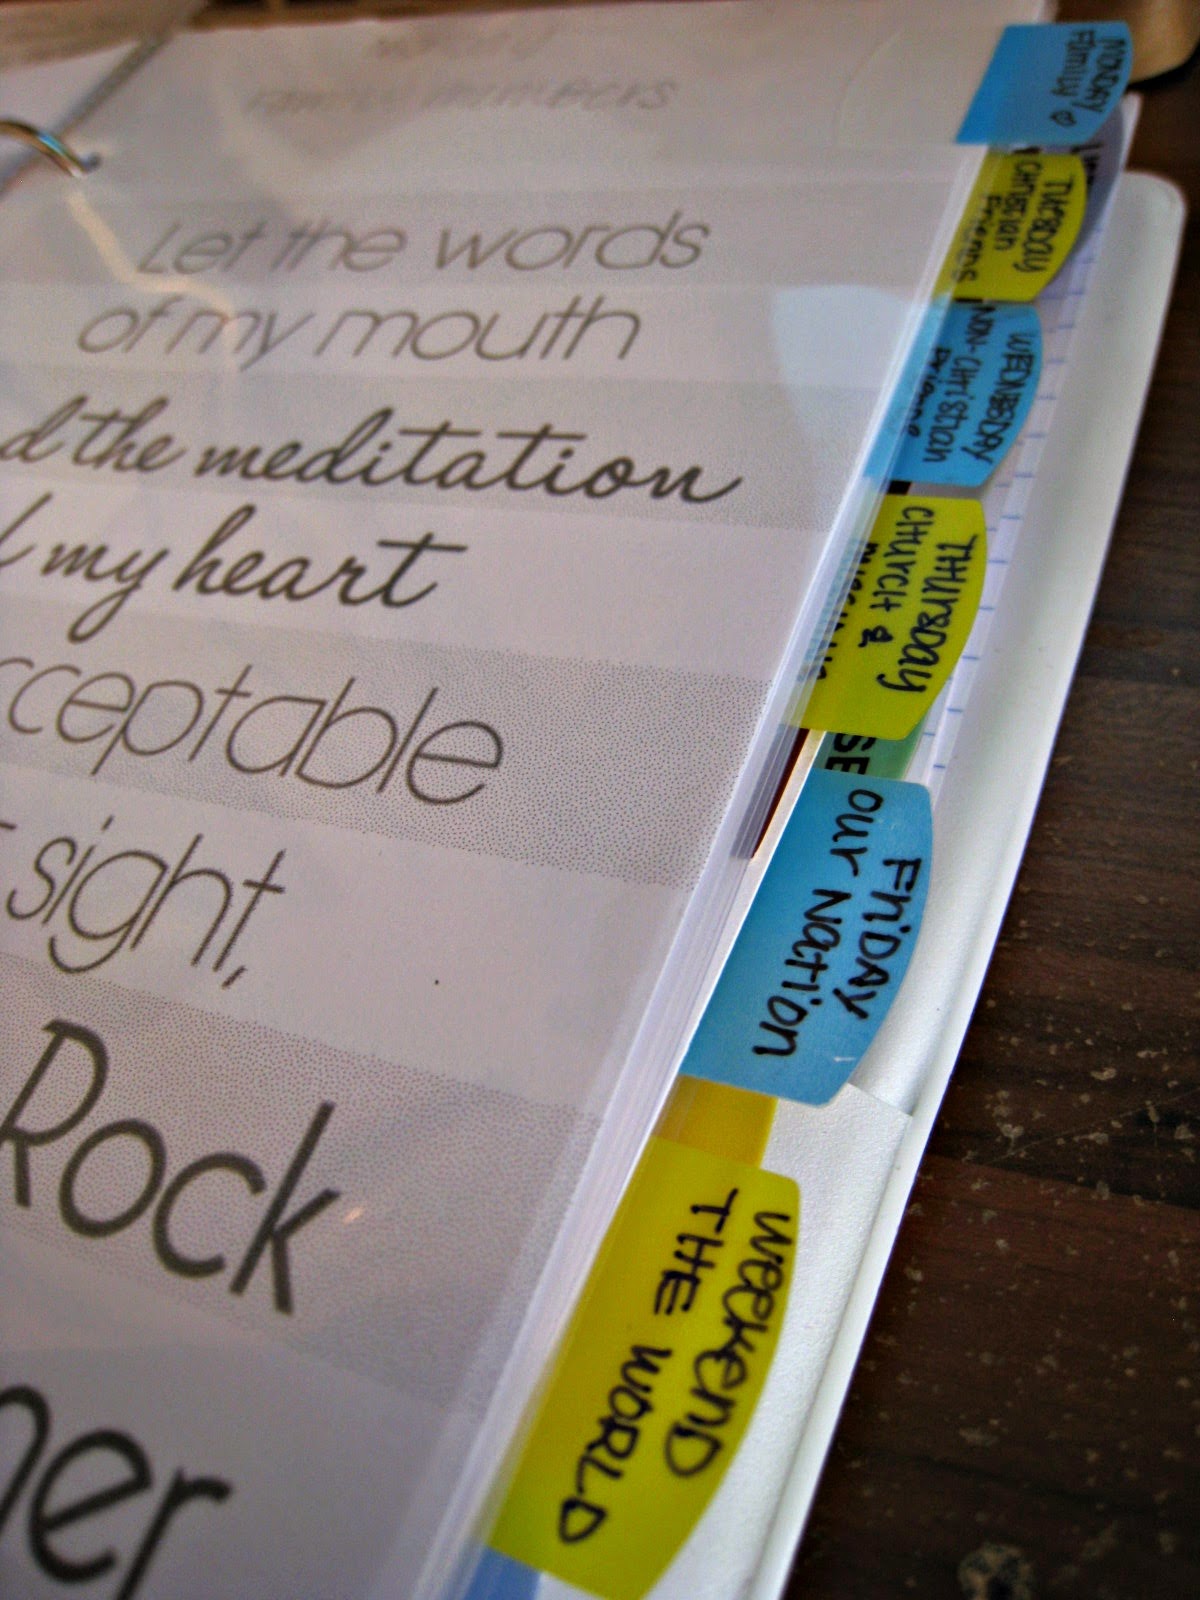 Let the words
of my mouth
d the meditation
my heart
cceptable
sight,
Rock
er
MONDAY
Family
TUESDAY
CHRISTIAN
Friends
WEDNESDAY
NON-CHristian
Friends
THURSDAY
CHURCH &
SE
FRiDAY
our Nation
WeekenD
THE WORLD